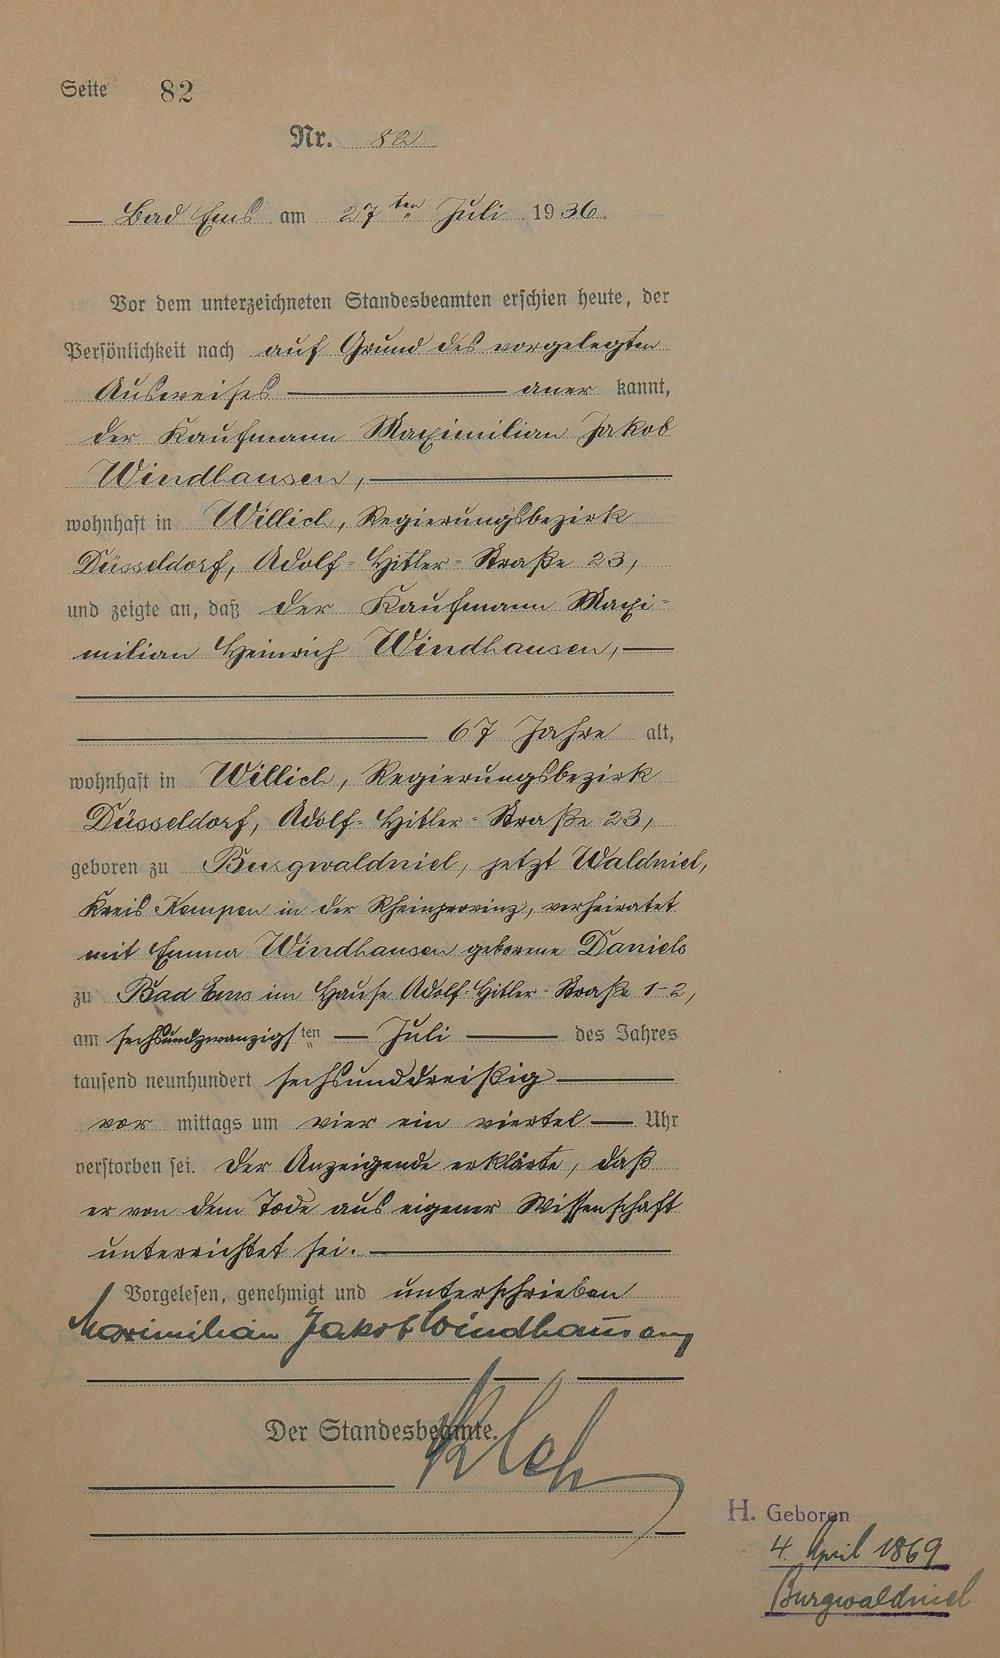 Seite 82
Nr. 82
Bad Ems am 27ten Juli 1936.
Vor dem unterzeichneten Standesbeamten erschien heute, der
Persönlichkeit nach auf Grund des vorgelegten
Ausweises — aner kannt,
der Kaufmann Maximilian Jakob
Windhausen, —
wohnhaft in Willich, Regierungsbezirk
Düsseldorf, Adolf-Hitler-Straße 23,
und zeigte an, daß der Kaufmann Maxi-
milian Heinrich Windhausen, —
67 Jahre alt,
wohnhaft in Willich, Regierungsbezirk
Düsseldorf, Adolf-Hitler-Straße 23,
geboren zu Burgwaldniel, jetzt Waldniel,
Kreis Kempen in der Rheinprovinz, verheiratet
mit Emma Windhausen geborene Daniels
zu Bad Ems im Hause Adolf-Hitler-Straße 1-2,
am sechsundzwanzigsten — Juli — des Jahres
tausend neunhundert sechsunddreißig —
vor mittags um vier ein viertel — Uhr
verstorben sei. Der Anzeigende erklärte, daß
er von dem Tode aus eigener Wissenschaft
unterrichtet sei. —
Vorgelesen, genehmigt und unterschrieben
Maximilian Jakob Windhausen
Der Standesbeamte.
H. Geboren
4. April 1869
Burgwaldniel